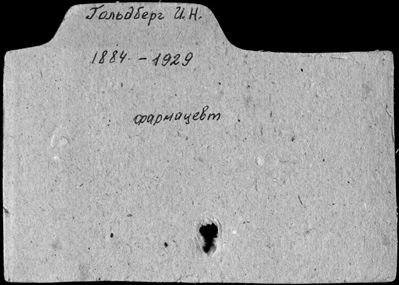 Гольдберг И.Н.
1884 - 1929
фармацевт